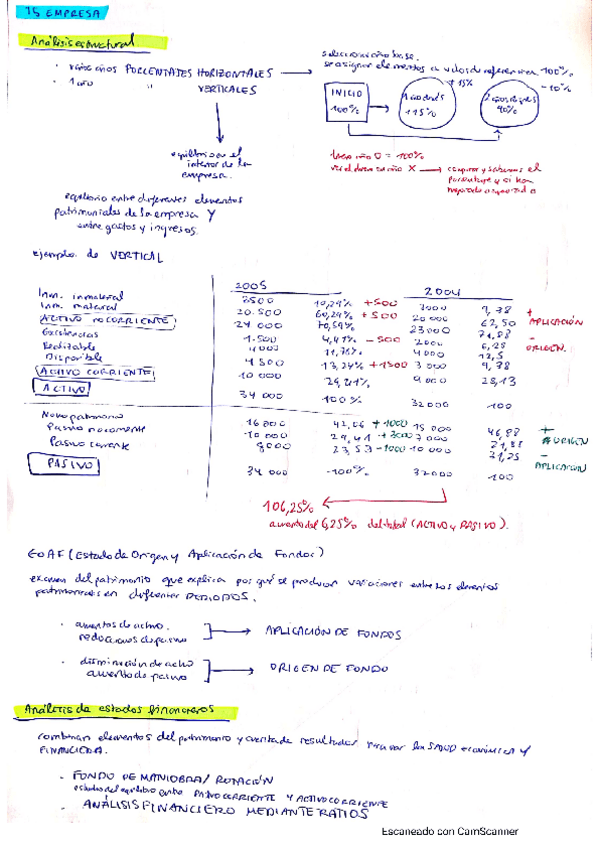 15 EMPRESA
Análisis estructural
· varios años PORCENTAJES HORIZONTALES
· 1 año " VERTICALES
seleccionar año base.
se asignan elementos a valor de referencia 100%
+15%
-10%
INICIO
100%
1 año después
115%
2 años después
90%
equilibrio en el
interior de la
empresa.
año 0 = 100%
valor año X → comparar y sabemos el
porcentaje y si ha
equilibrio entre diferentes elementos
patrimoniales de la empresa y
entre gastos y ingresos.
Ejemplo de VERTICAL
2005 2004
Inm. inmaterial 3500 10,29% +500 3000 9,38
Inm. material 20.500 60,29% +500 20000 62,50
ACTIVO NO CORRIENTE 24000 70,59% 23000 71,88
+ APLICACIÓN
Existencias 1.500 4,41% -500 2000 6,25
Realizable 4000 11,76% 4000 12,5
- ORIGEN
Disponible 4500 13,24% +1500 3000 9,38
ACTIVO CORRIENTE 10000 29,41% 9000 28,13
ACTIVO 34000 100% 32000 100
Novo patrimonio 16000 +1000 15000 46,88
Pasivo no corriente 10000 29,41 +3000 7000 21,88
+ ORIGEN
Pasivo corriente 8000 23,53 -1000 10000 31,25
- APLICACIÓN
PASIVO 34000 100% 32000 100
106,25%
aumento del 6,25% del total (ACTIVO y PASIVO).
EOAF (Estado de Origen y Aplicación de Fondos)
examen del patrimonio que explica por qué se producen variaciones entre los elementos
patrimoniales en diferentes PERIODOS.
· aumentos de activo.
reducciones de pasivo
→ APLICACIÓN DE FONDOS
· disminución de activo
aumento de pasivo
→ ORIGEN DE FONDO
Análisis de estados financieros
combinan elementos del patrimonio y cuenta de resultados para ver la SALUD económica y
FINANCIERA.
· FONDO DE MANIOBRA / ROTACIÓN
estudio del equilibrio entre PASIVO CORRIENTE Y ACTIVO CORRIENTE
· ANÁLISIS FINANCIERO MEDIANTE RATIOS
Escaneado con CamScanner